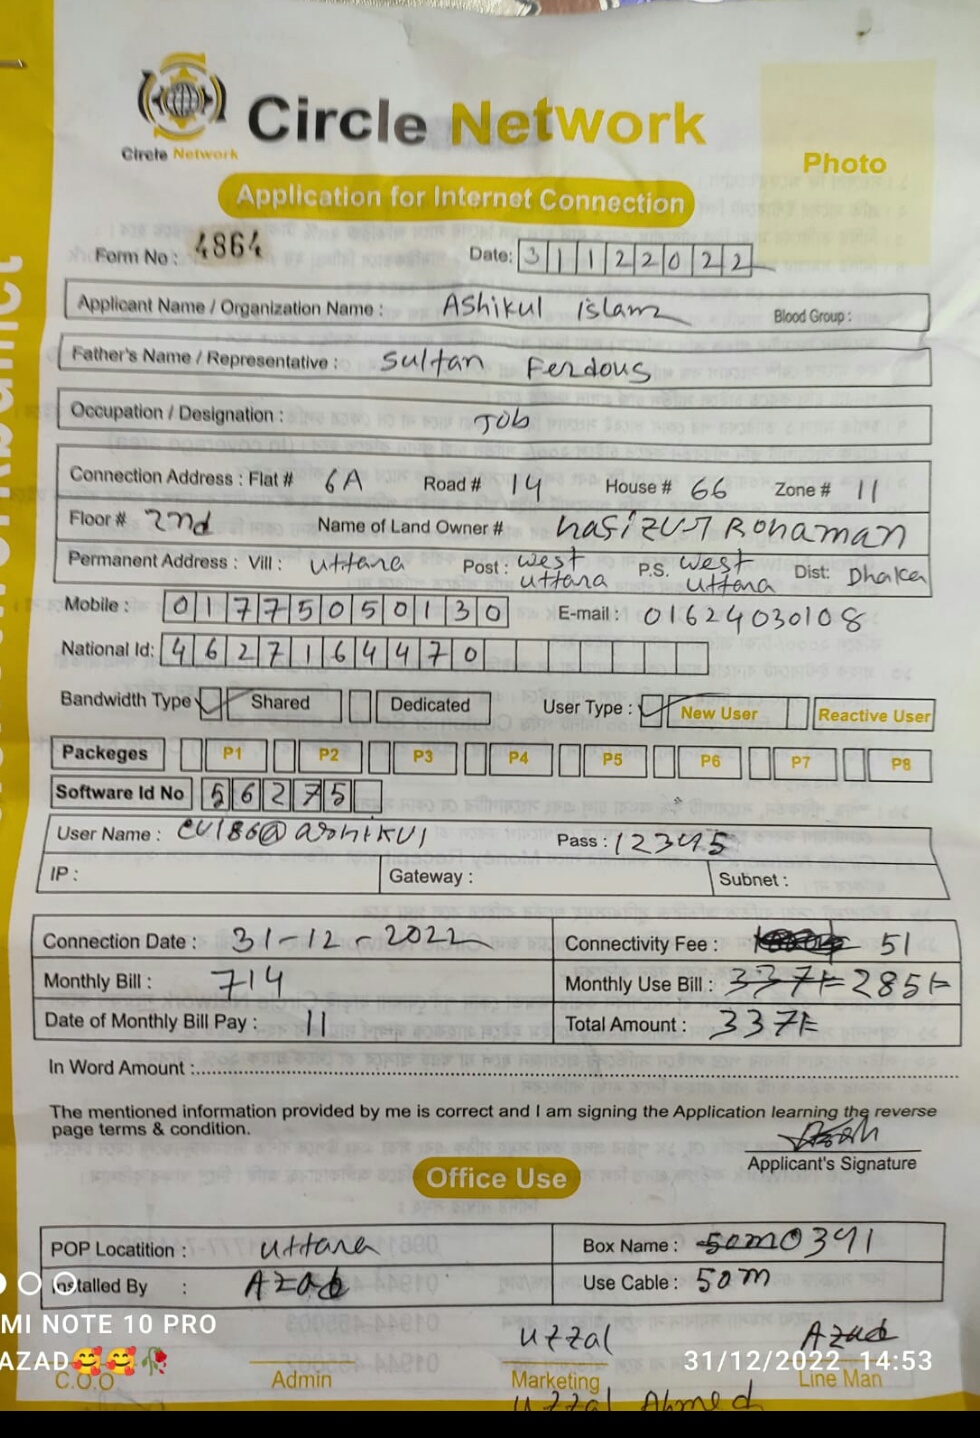 Circle Network
Circle Network
Photo
Application for Internet Connection
Form No : 4864
Date: 31122022
Applicant Name / Organization Name : Ashikul islam
Blood Group :
Father's Name / Representative : Sultan Ferdous
Occupation / Designation : Job
Connection Address : Flat # 6A Road # 14 House # 66 Zone # 11
Floor # 2nd Name of Land Owner # hafizur Rohaman
Permanent Address : Vill : uttara Post : west uttara P.S. west uttara Dist: Dhaka
Mobile : 01775050130 E-mail : 01624030108
National Id: 4627164470
Bandwidth Type Shared Dedicated User Type : New User Reactive User
Packeges P1 P2 P3 P4 P5 P6 P7 P8
Software Id No 56275
User Name : Pass : 12345
IP : Gateway : Subnet :
Connection Date : 31-12-2022 Connectivity Fee : 51
Monthly Bill : 714 Monthly Use Bill : 337/= 285/=
Date of Monthly Bill Pay : 11 Total Amount : 337/=
In Word Amount :
The mentioned information provided by me is correct and I am signing the Application learning the reverse
page terms & condition.
Applicant's Signature
Office Use
POP Locatition : uttara Box Name : 50m 0391
Installed By : Azad Use Cable : 50m
MI NOTE 10 PRO
uzzal Azad
AZAD🥰🥰🥀 31/12/2022 14:53
C.O.O Admin Marketing Line Man
uzzal Ahmed